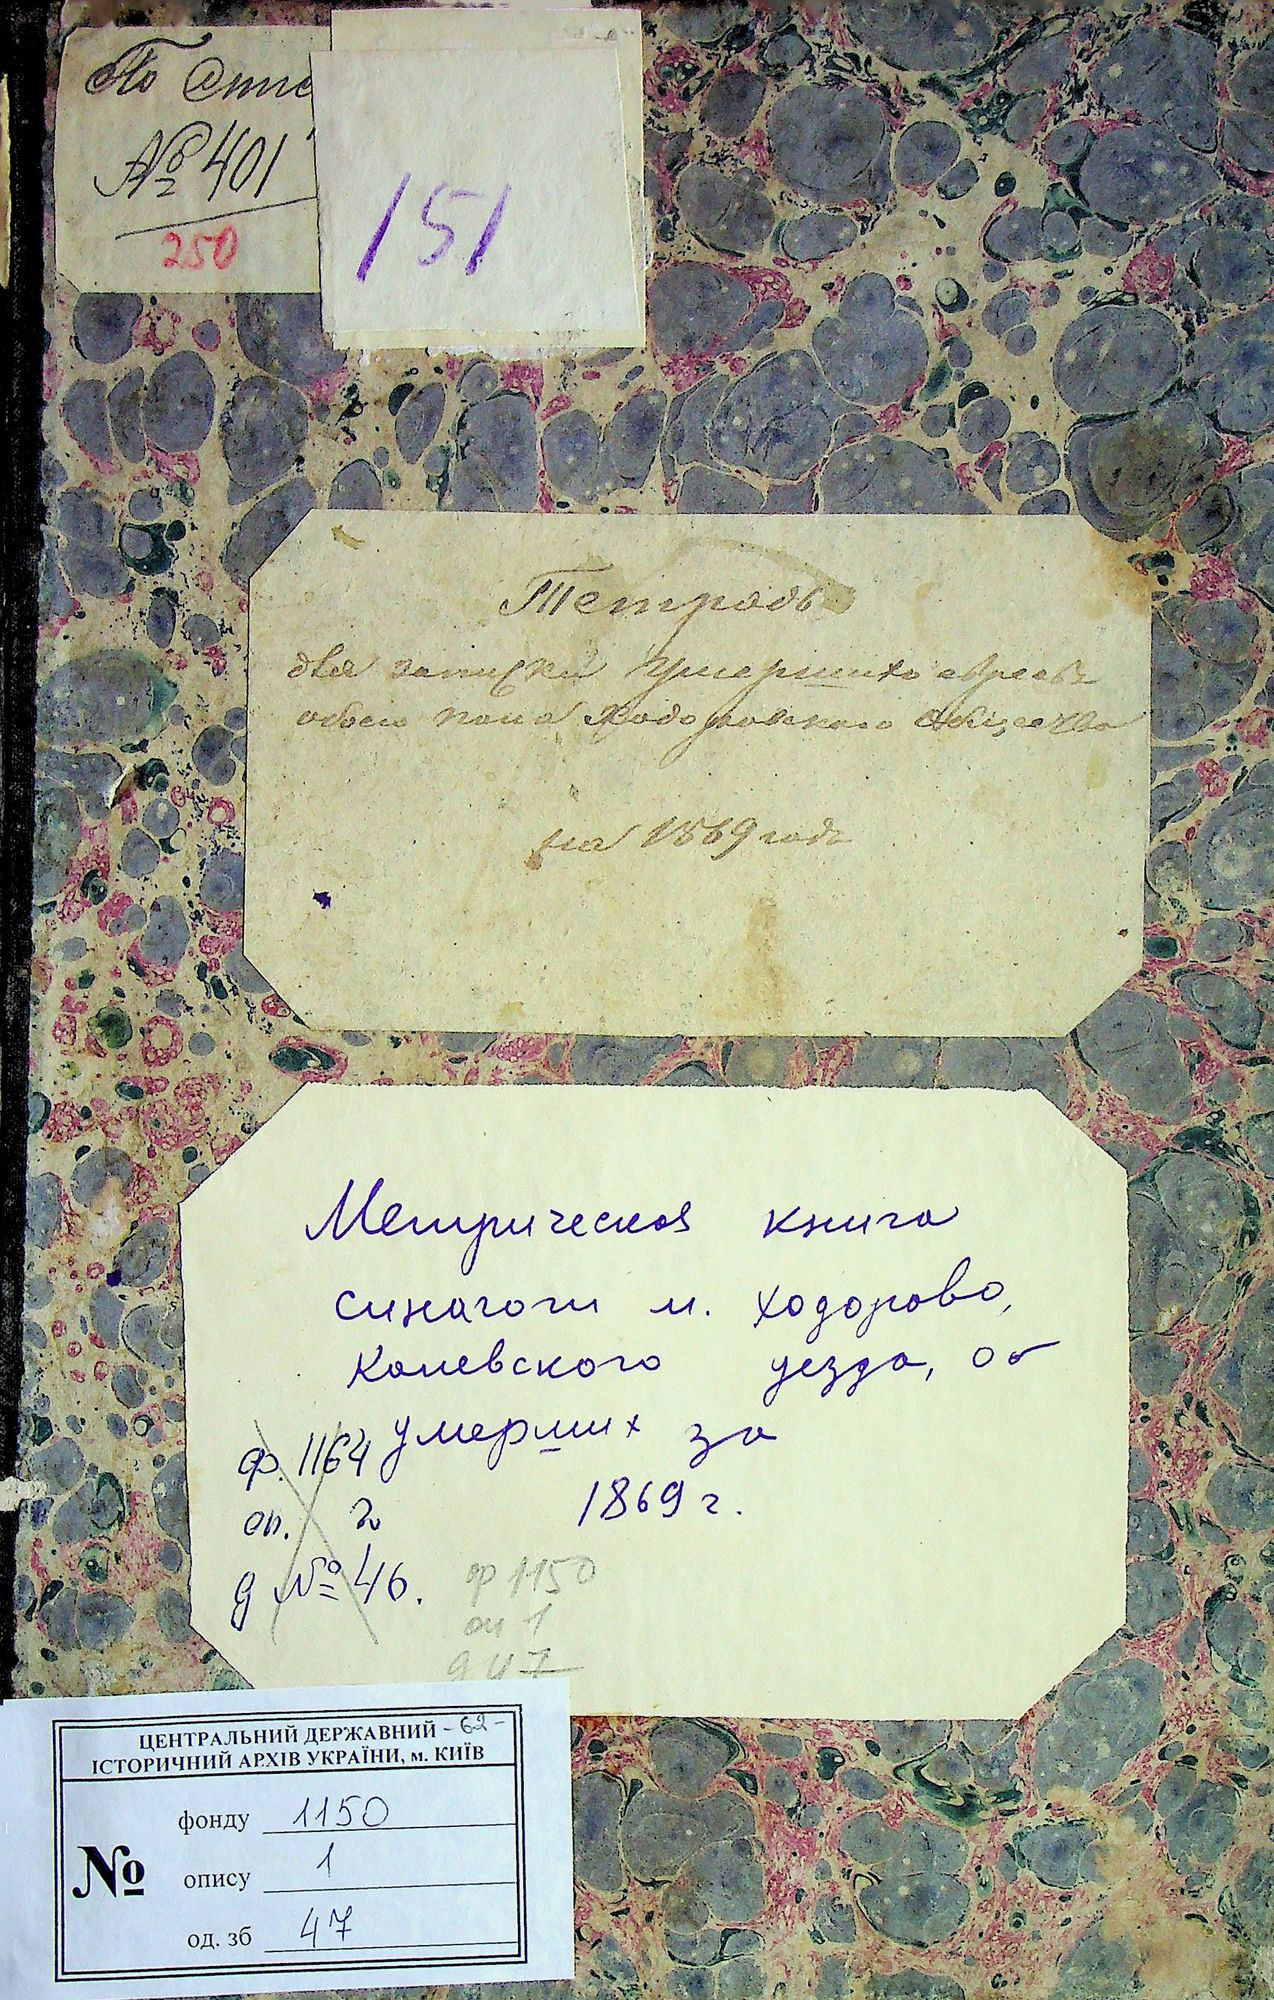 По Опис
№ 401
250
151
Тетрадь
для записки умершихъ евреевъ
обоего пола Ходоровскаго общества
на 1869 годъ
Метрическая книга
синагоги м. Ходорово,
Каневского уезда, об
умерших за
1869 г.
ф. 1164
оп. 2
д №46.
ф 1150
оп 1
д 47
ЦЕНТРАЛЬНИЙ ДЕРЖАВНИЙ -62-
ІСТОРИЧНИЙ АРХІВ УКРАЇНИ, м. КИЇВ
№
фонду 1150
опису 1
од. зб 47